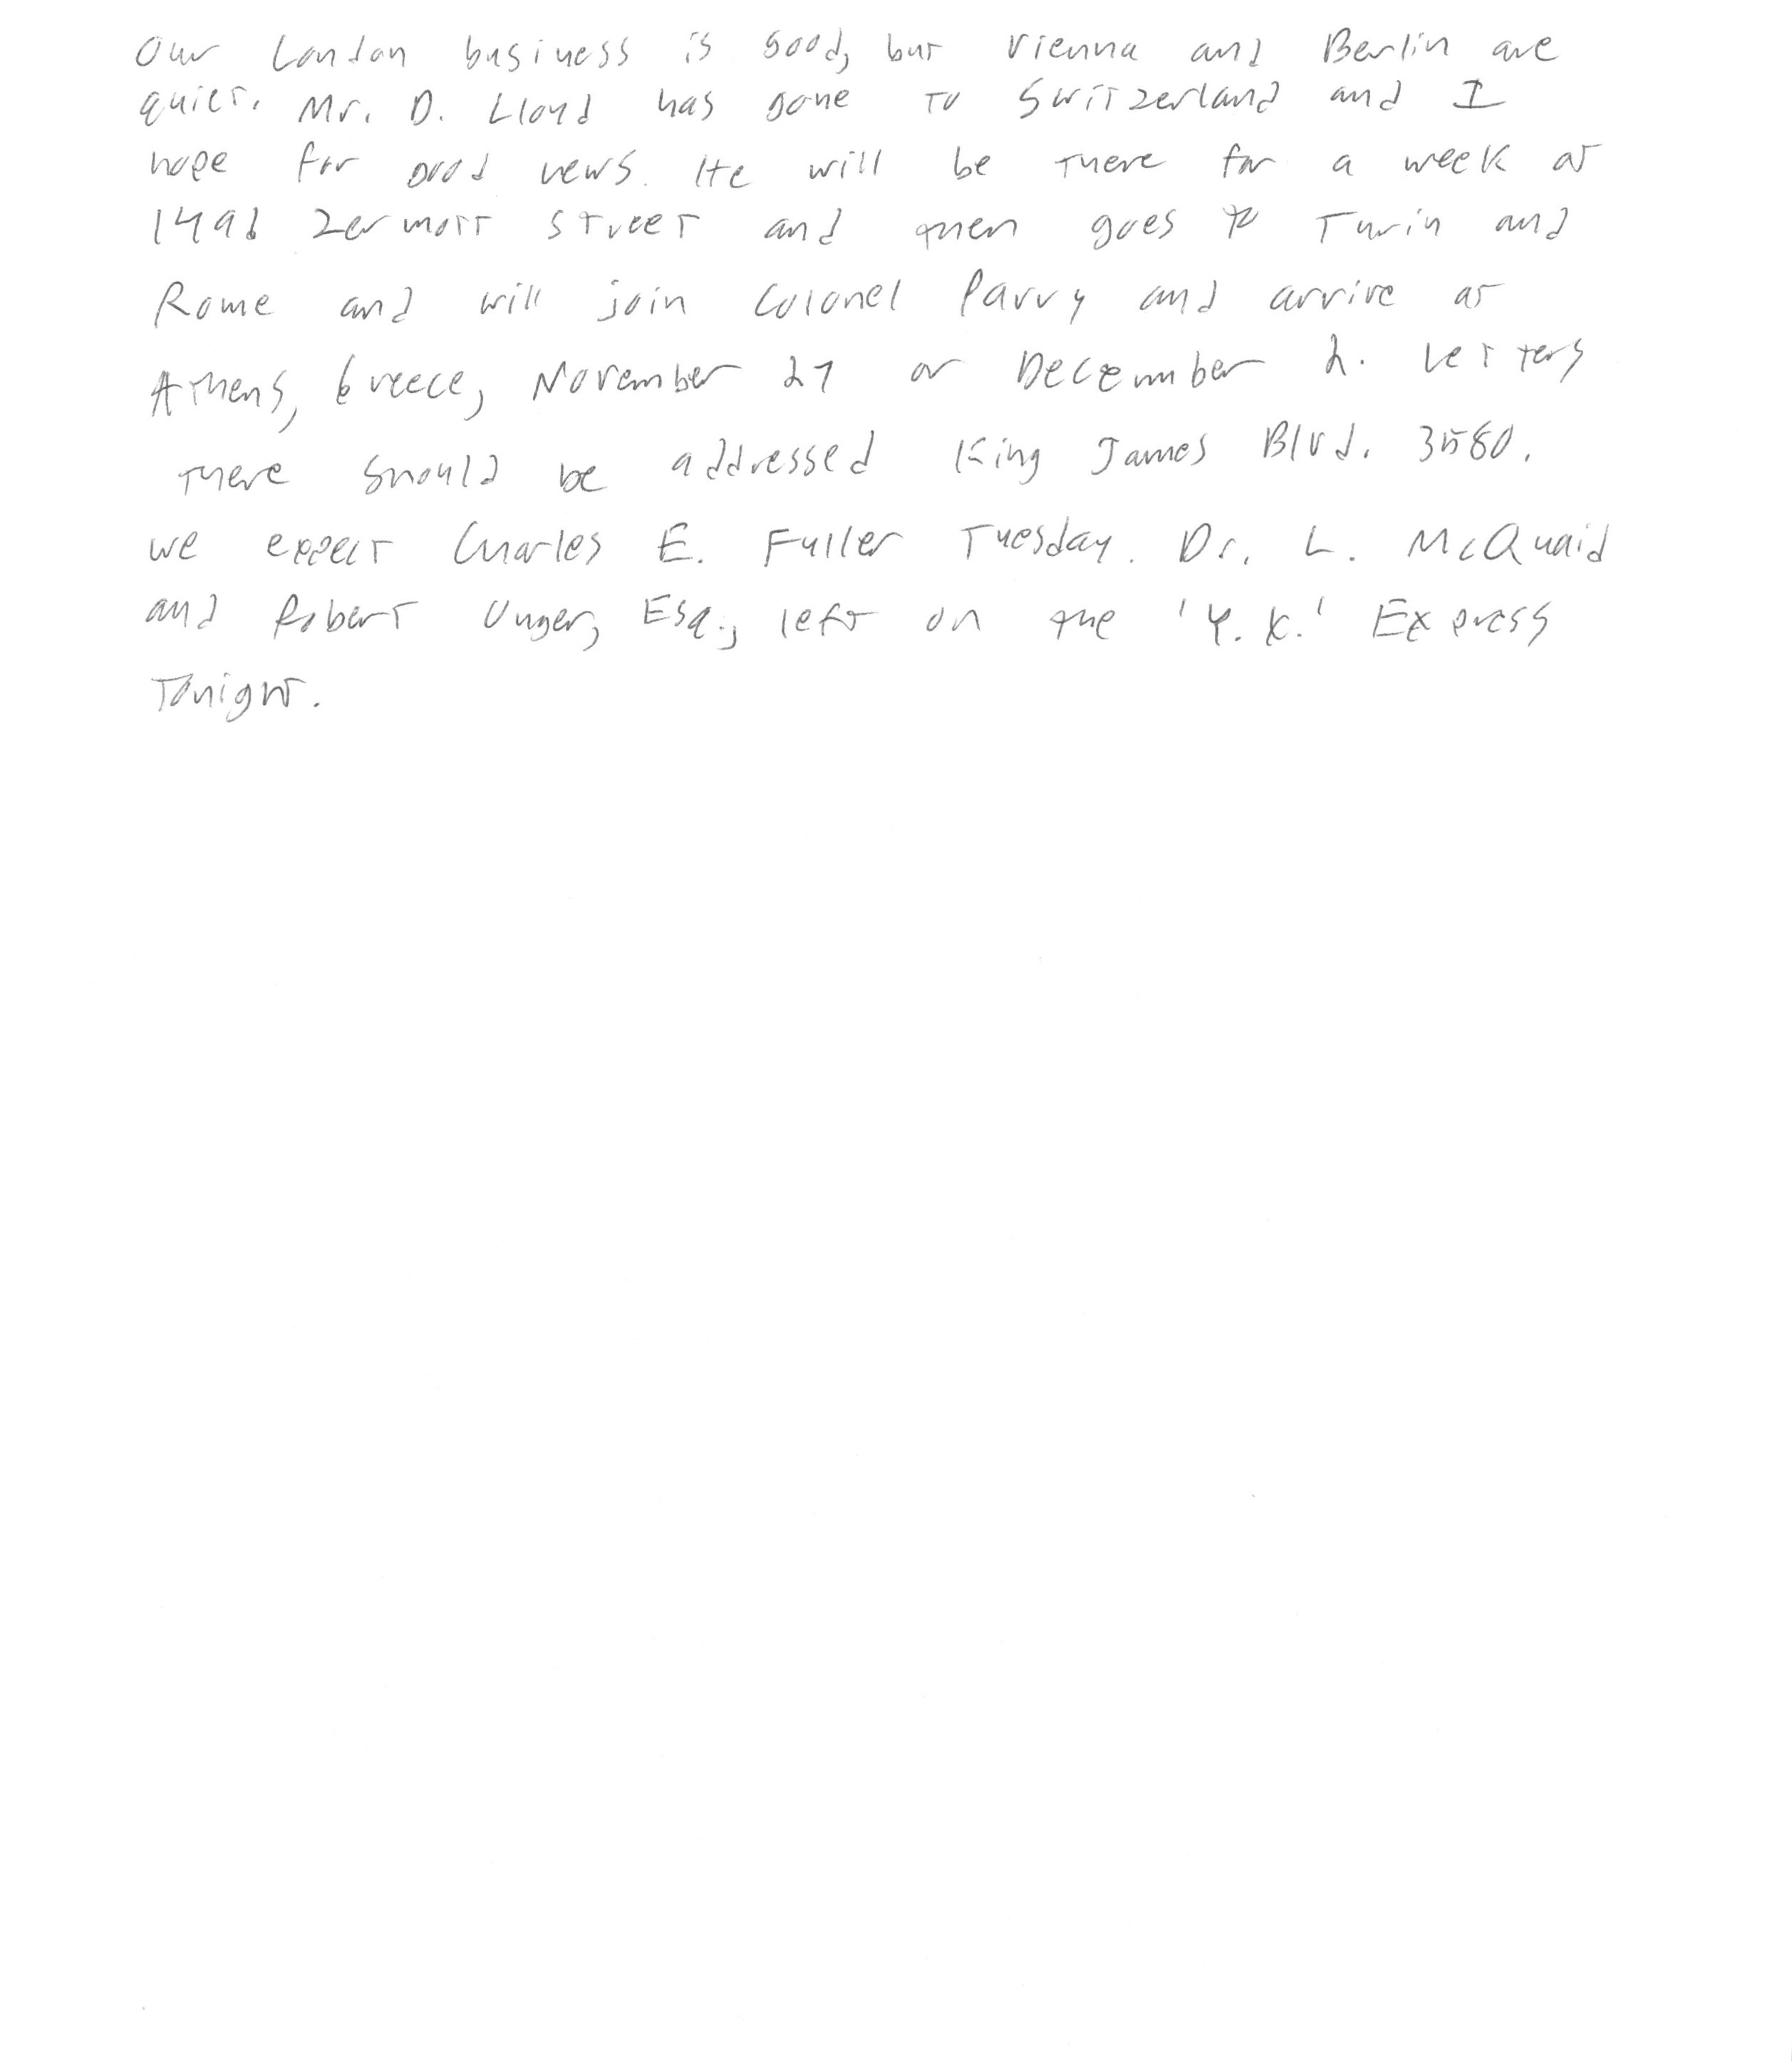 Our London business is good, but Vienna and Berlin are
quiet. Mr. D. Lloyd has gone to Switzerland and I
hope for good news. He will be there for a week at
1496 Zermott Street and then goes to Turin and
Rome and will join Colonel Parry and arrive at
Athens, Greece, November 27 or December 2. Letters
there should be addressed King James Blvd. 3580.
We expect Charles E. Fuller Tuesday. Dr. L. McQuaid
and Robert Unger, Esq., left on the 'Y.X.' Express
Tonight.